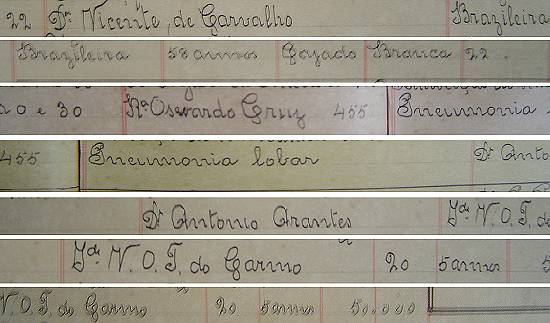 22 Dr Vicente de Carvalho Brazileira
Brazileira 58 annos Cazado Branca 22.
20 e 30 Ra Oswardo Cruz 455 Pneumonia
455 Pneumonia lobar Dr Anto
Dr Antonio Arantes Jda V. O. T. do
Jda V. O. T. do Carmo 20 5 annos 5
V. O. T. do Carmo 20 5 annos 50.000